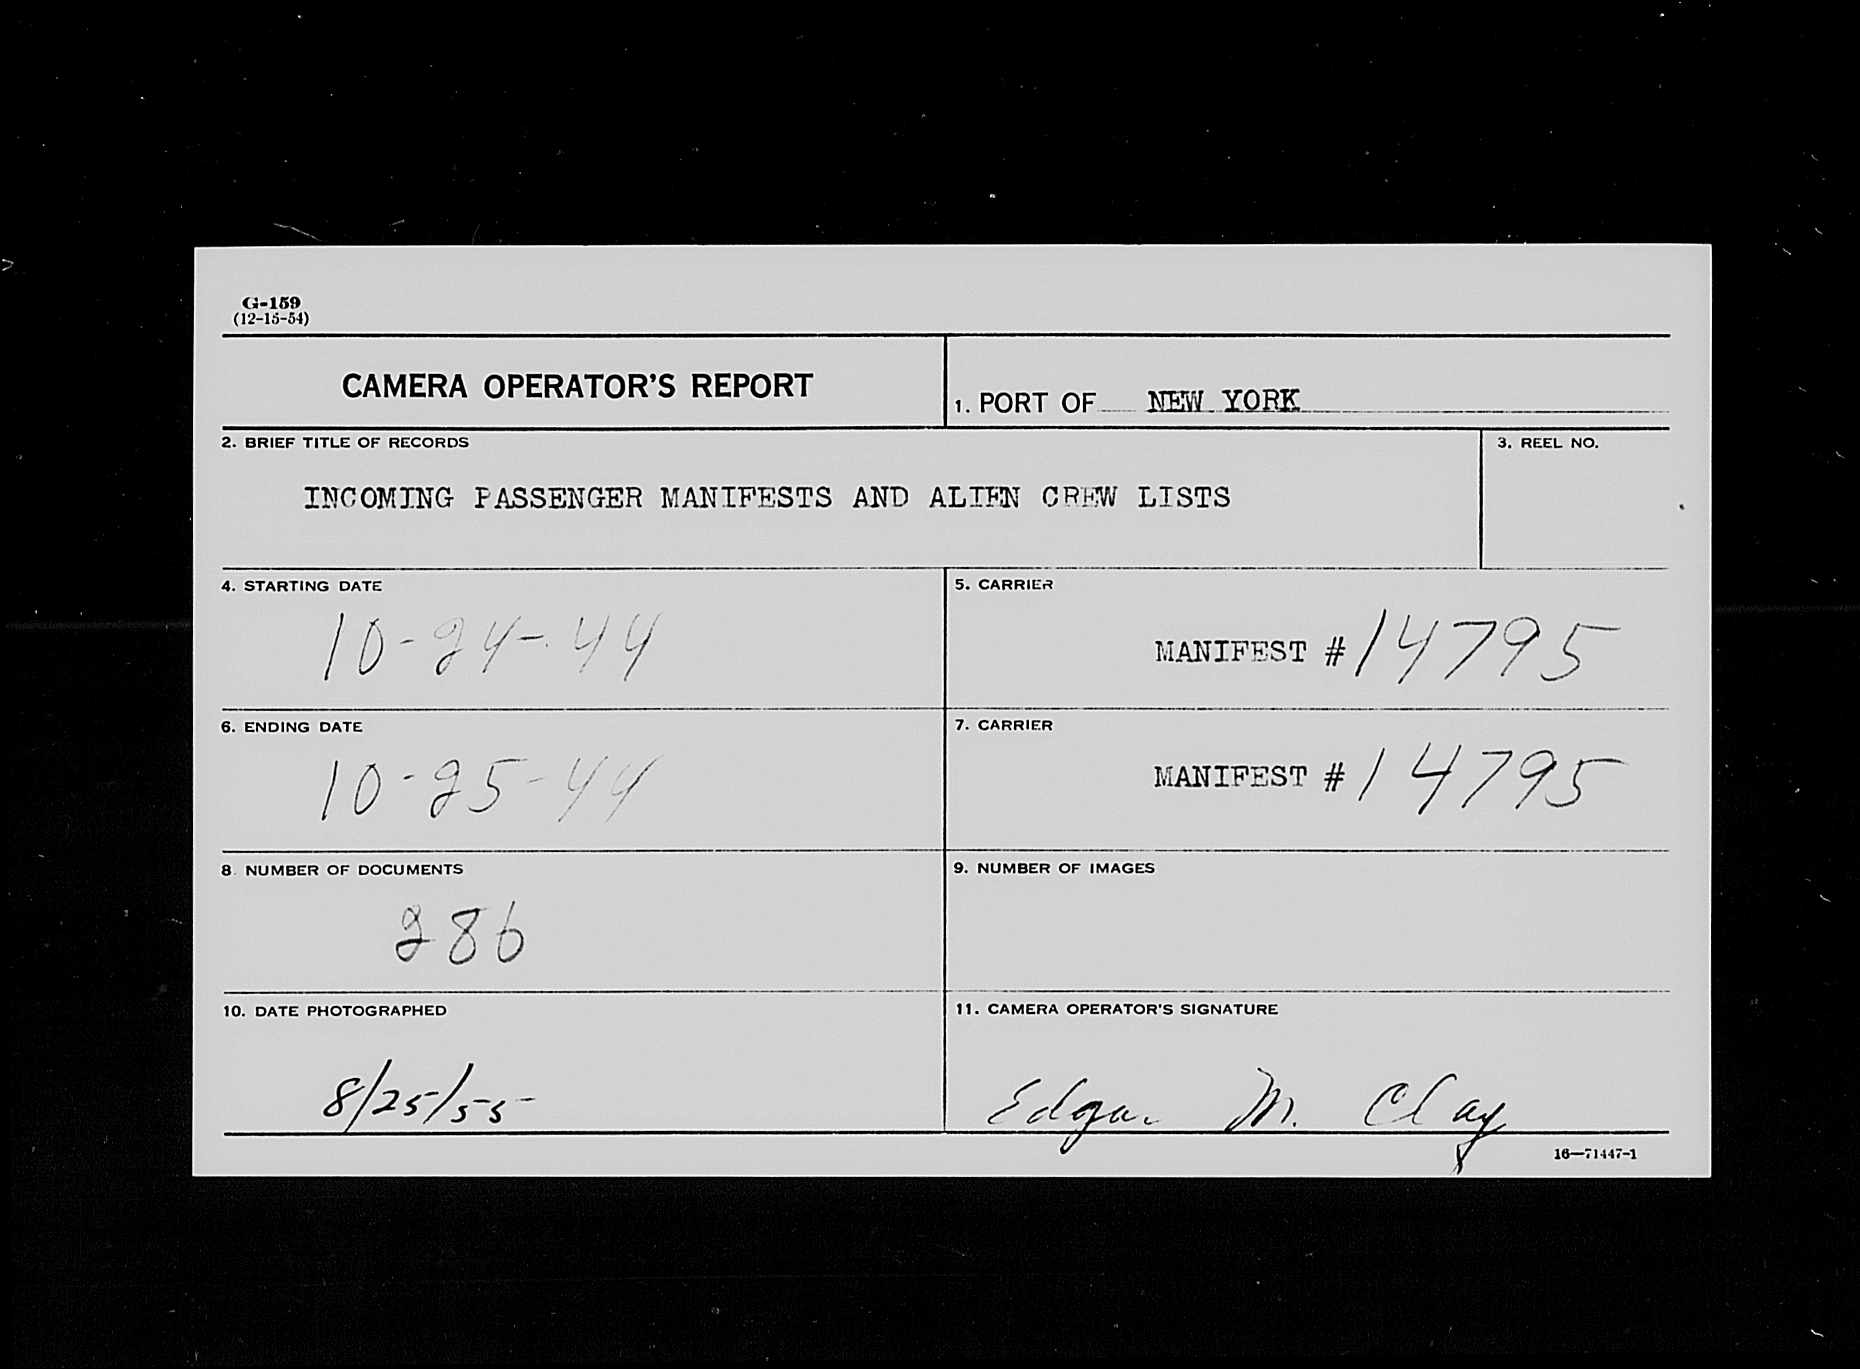 G-159
(12-15-54)
CAMERA OPERATOR'S REPORT
1. PORT OF NEW YORK
2. BRIEF TITLE OF RECORDS
INCOMING PASSENGER MANIFESTS AND ALIEN CREW LISTS
3. REEL NO.
4. STARTING DATE
10-24-44
5. CARRIER
MANIFEST # 14795
6. ENDING DATE
10-25-44
7. CARRIER
MANIFEST # 14795
8. NUMBER OF DOCUMENTS
286
9. NUMBER OF IMAGES
10. DATE PHOTOGRAPHED
8/25/55
11. CAMERA OPERATOR'S SIGNATURE
Edgar M. Clay
16—71447-1